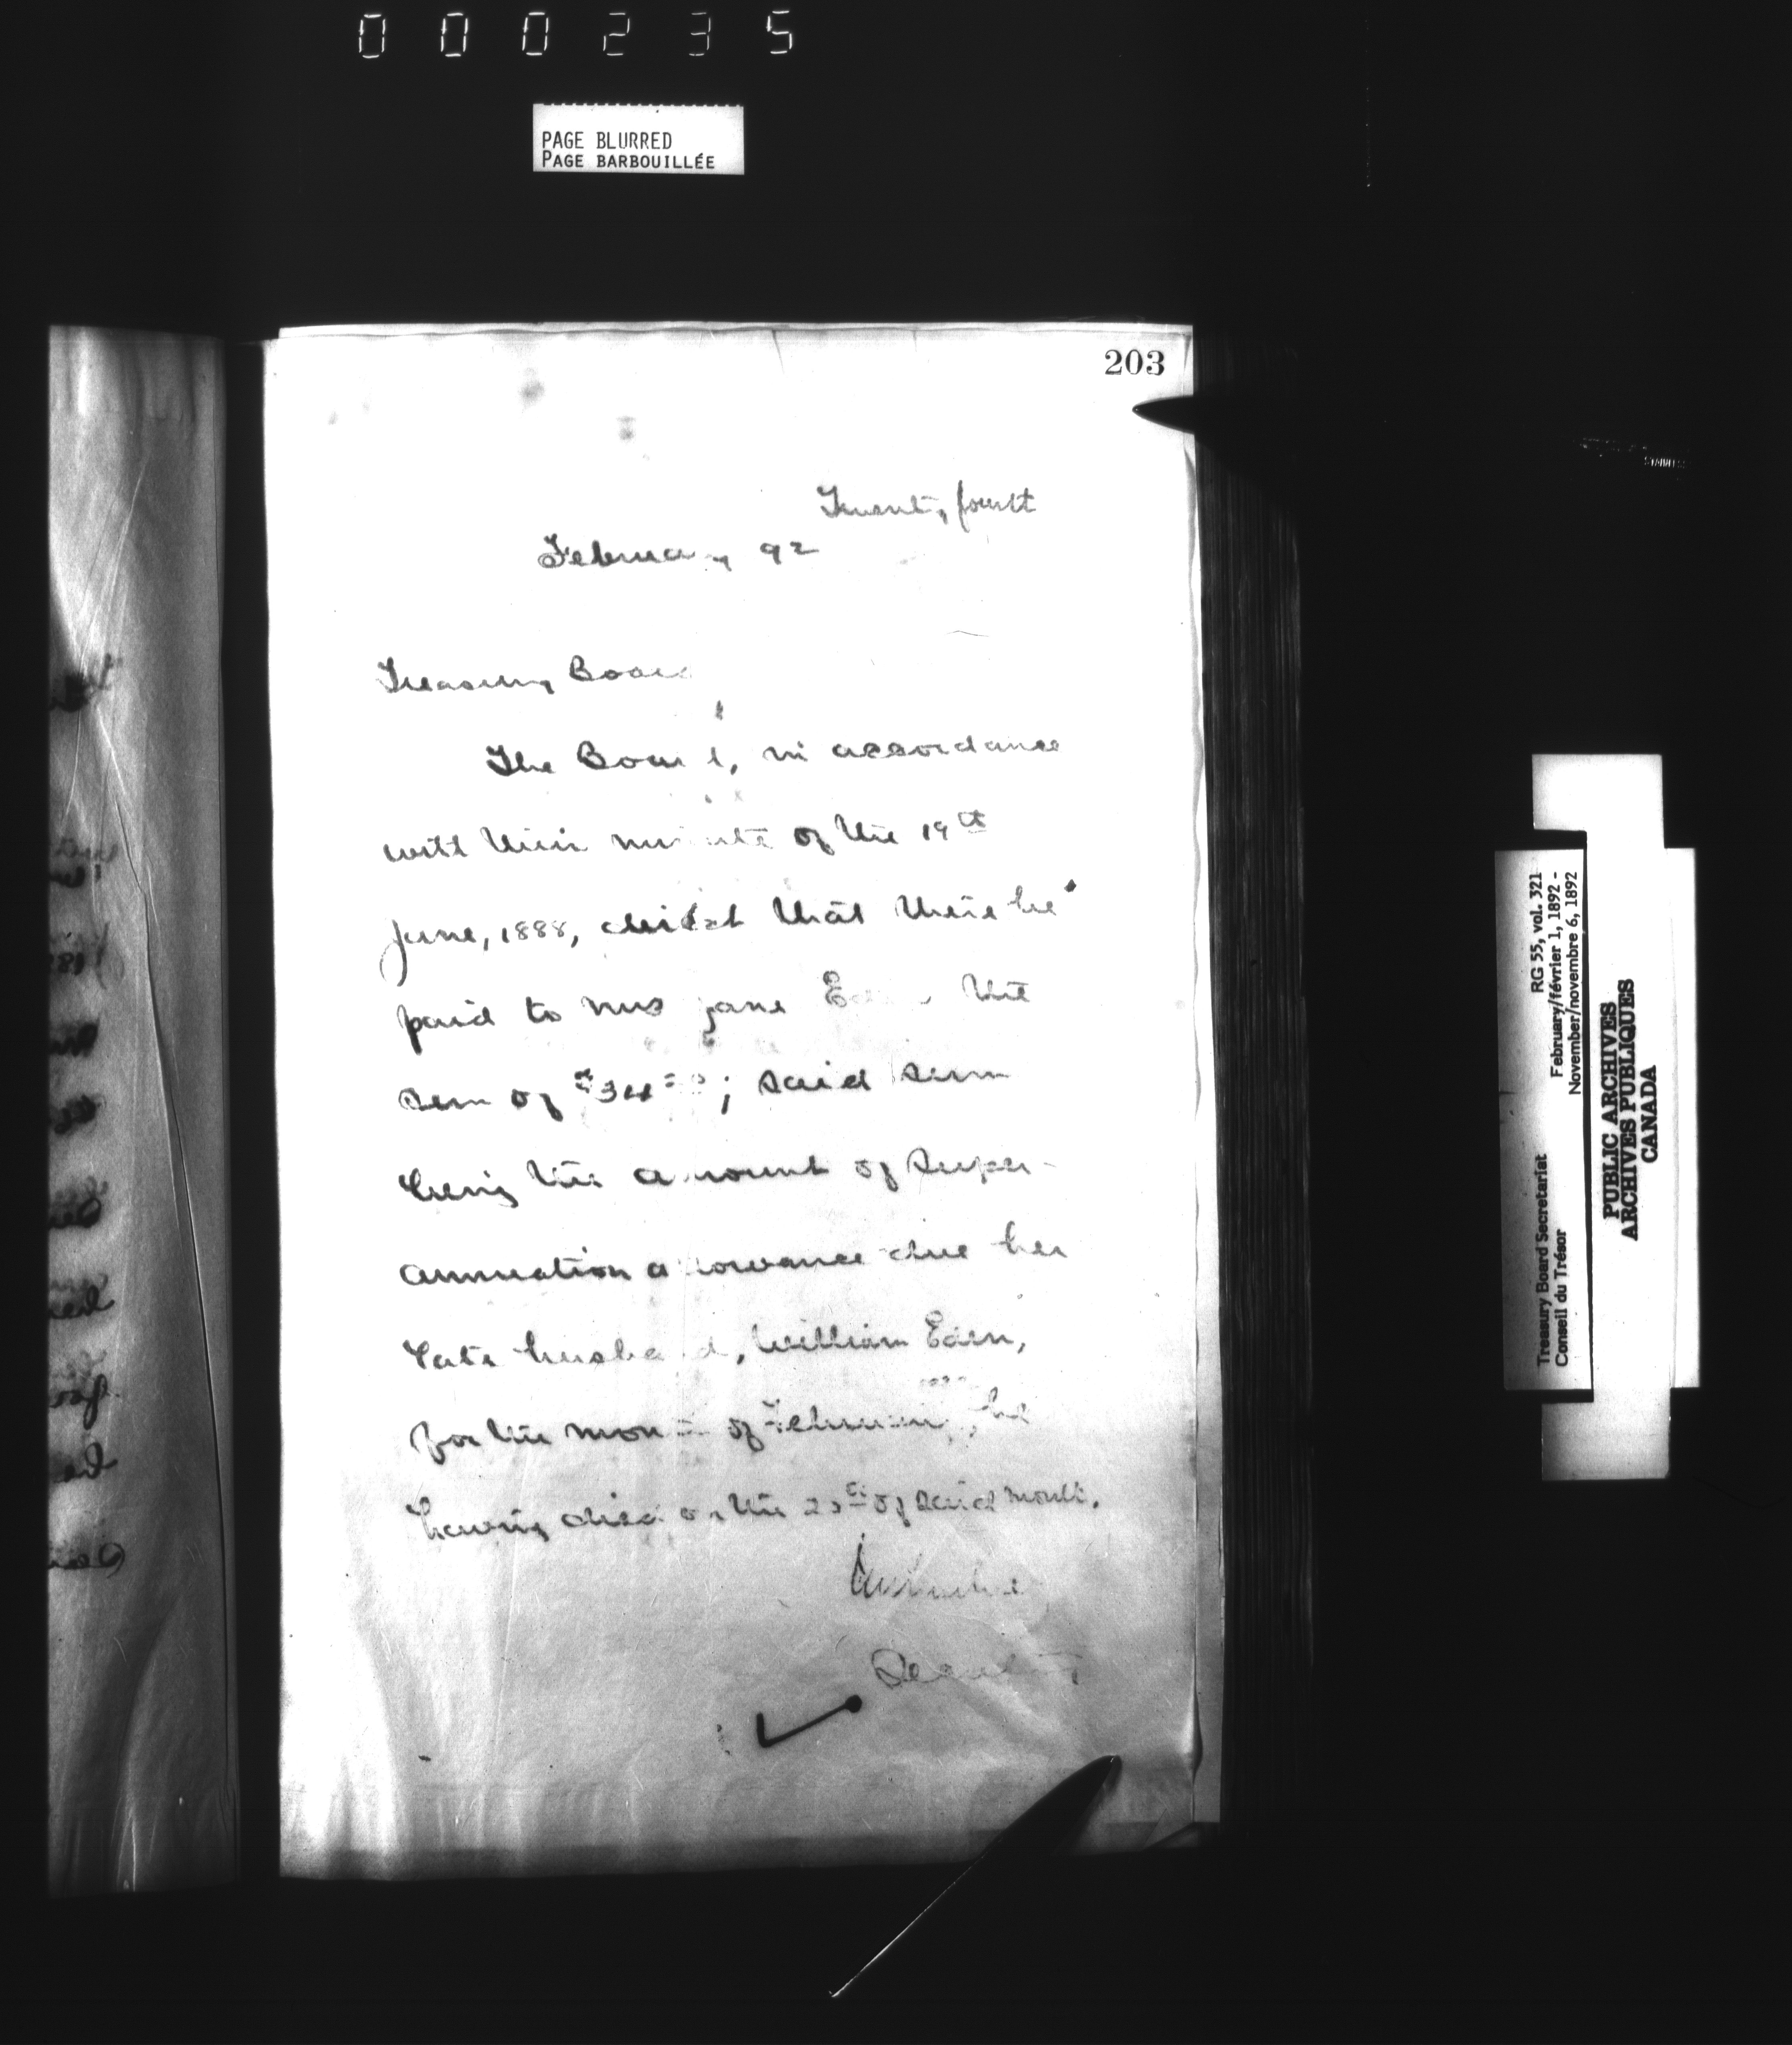 000235
PAGE BLURRED
PAGE BARBOUILLÉE
203
Twenty fourth
February 92
Treasury Board
The Board, in accordance
with their minute of the 19th
June, 1888, direct that there be
paid to Mrs Jane Eden the
sum of $34; said sum
being the amount of super-
annuation allowance due her
late husband, William Eden,
for the month of February, he
having died on the of said month.
Secretary
RG 55, vol. 321
February/février 1, 1892 -
November/novembre 6, 1892
Treasury Board Secretariat
Conseil du Trésor
PUBLIC ARCHIVES
ARCHIVES PUBLIQUES
CANADA